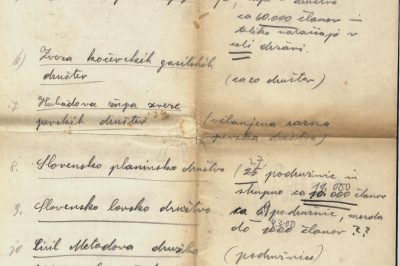 ca 60.000 članov in
toliko naraščaja v
celi državi.
6) Zveza kočevskih gasilskih
društev
(ca 20 društev)
7. Hubadova župa zveze
pevskih društev
8. Slovensko planinsko društvo
(27 podružnic in
skupno ca članov
9. Slovensko lovsko društvo
ca podružnic, morda
do članov ??
10 Ciril Metodova družba
(podružnice)